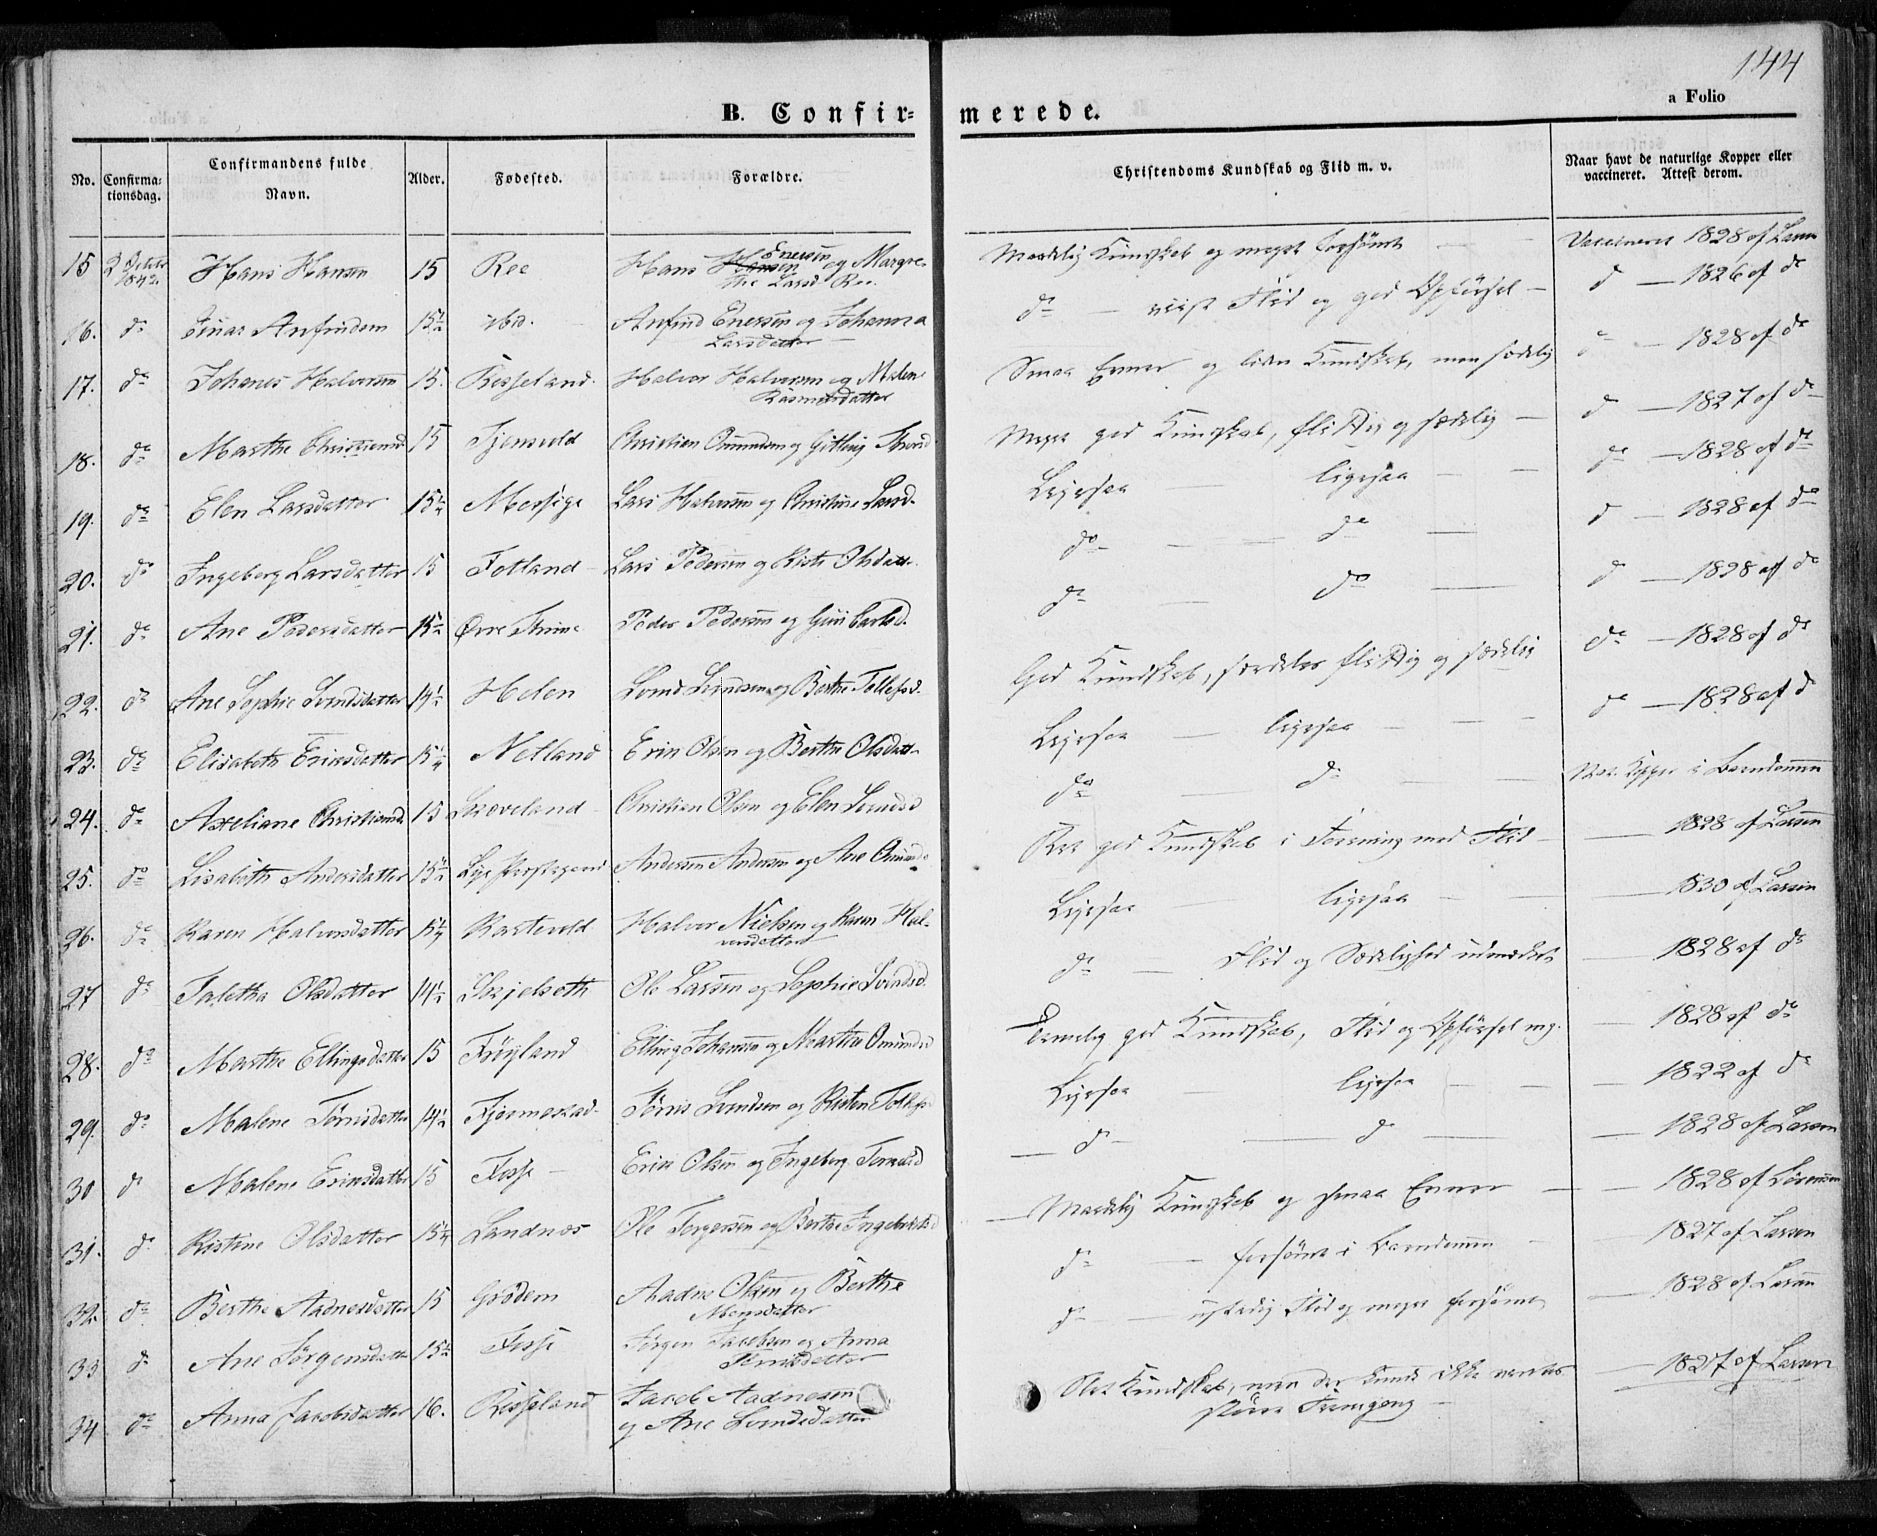 144
a Folio
B. Confir= merede.
No. Confirma=tionsdag. Confirmandens fulde Navn. Alder. Fødested. Forældre. Christendoms Kundskab og Flid m. v. Naar havt de naturlige Kopper eller vaccineret. Attest derom.
15 2 Octbr 1842 Hans Hansen 15 Ree Hans Enersen og Margrethe Larsd Ree Maadelig Kundskab og meget forsømt Vaccineret 1828 af Larsen
16. do Einar Anfindsen 15½ ibid. Anfind Enersen og Johanna Larsdatter do Flid og god Opførsel d 1826 af do
17. do Johanes Halvorsen 15. Risseland Halvor Halvorsen og Malene Rasmusdatter Smaa Evner og liden Kundskab, men sædelig d 1828 af do
18. do Marthe Christensd 15 Tjensvold Christen Omundsen og Meget god Kundskab, flittig og sædelig d 1827 af do
19. do Elen Larsdatter 15¼ Mossige Lars Halvorsen og Christine Larsd. Ligesaa ligesaa do 1828 af do
20. do Ingeborg Larsdatter 15 Fotland Lars Pedersen og do do d 1828 af do
21. do Ane Pedersdatter 15½ Øvre Thime Peder Pedersen og Guri do do d 1828 af do
22. do Ane Sophie Svendsdatter 14½ Helen Svend Svendsen og Berthe Tollefsd. God Kundskab, særdeles flittig og sædelig do 1828 af do
23. do Elisabeth Ericsdatter 15¼ Netland Eric Olsen og Berthe Olsdatt Ligesaa ligesaa do 1828 af d
24. do Axeliane Christensd 15 Skæveland Christen Olsen og Elen Svendsd do do Nat. Kopper i Barndommen
25. do Lisabeth Andersdatter 15½ Lye Præstegaard Andersen og Ane Omundsd Ret god Kundskab i Forening med Flid 1828 af Larsen
26. do Karen Halvorsdatter 15¼ Kartevold Halvor Nielsen og Karen Halvorsdatter Ligesaa ligesaa 1830 af Larsen
27 do Taletha Olsdatter 14½ Skjelseth Ole Larsen og Sophie Svendsd. do Flid og Sædelighed udmærket 1828 af do
28. do Marthe Ellingsdatter 15 Frøyland Elling Johansen og Marthe Omundsd Temmelig god Kundskab, Flid og Opførsel mg. 1828 af do
29. do Malene Tørrisdatter 14½ Fjermestad Tørris Svendsen og Kisten Ligesaa ligesaa 1822 af do
30 do Malene Ericsdatter 15 Fosse Eric Olsen og Ingeborg d do 1828 af Larsen
31. do Kistine Olsdatter 15¼ Sandnæs Ole Torgersen og Berthe Ingebretsd Maadelig Kundskab og smaa Evner 1828 af Sørensen
32. do Berthe Aadnesdatter 15 Grødem Aadne Olsen og Berthe Monsdatter do forsømt i Barndommen 1827 af Larsen
33 do Ane Jørgensdatter 15½ Fosse Jørgen Jacobsen og Anna do Flid og meget forsømt 1828 af Larsen
34 do Anna Jacobsdatter 16. Risseland Jacob Aadnesen og Ane Svendsdatter Slet Kundskab, men der kunde ikke ventes større Fremgang 1827 af Larsen